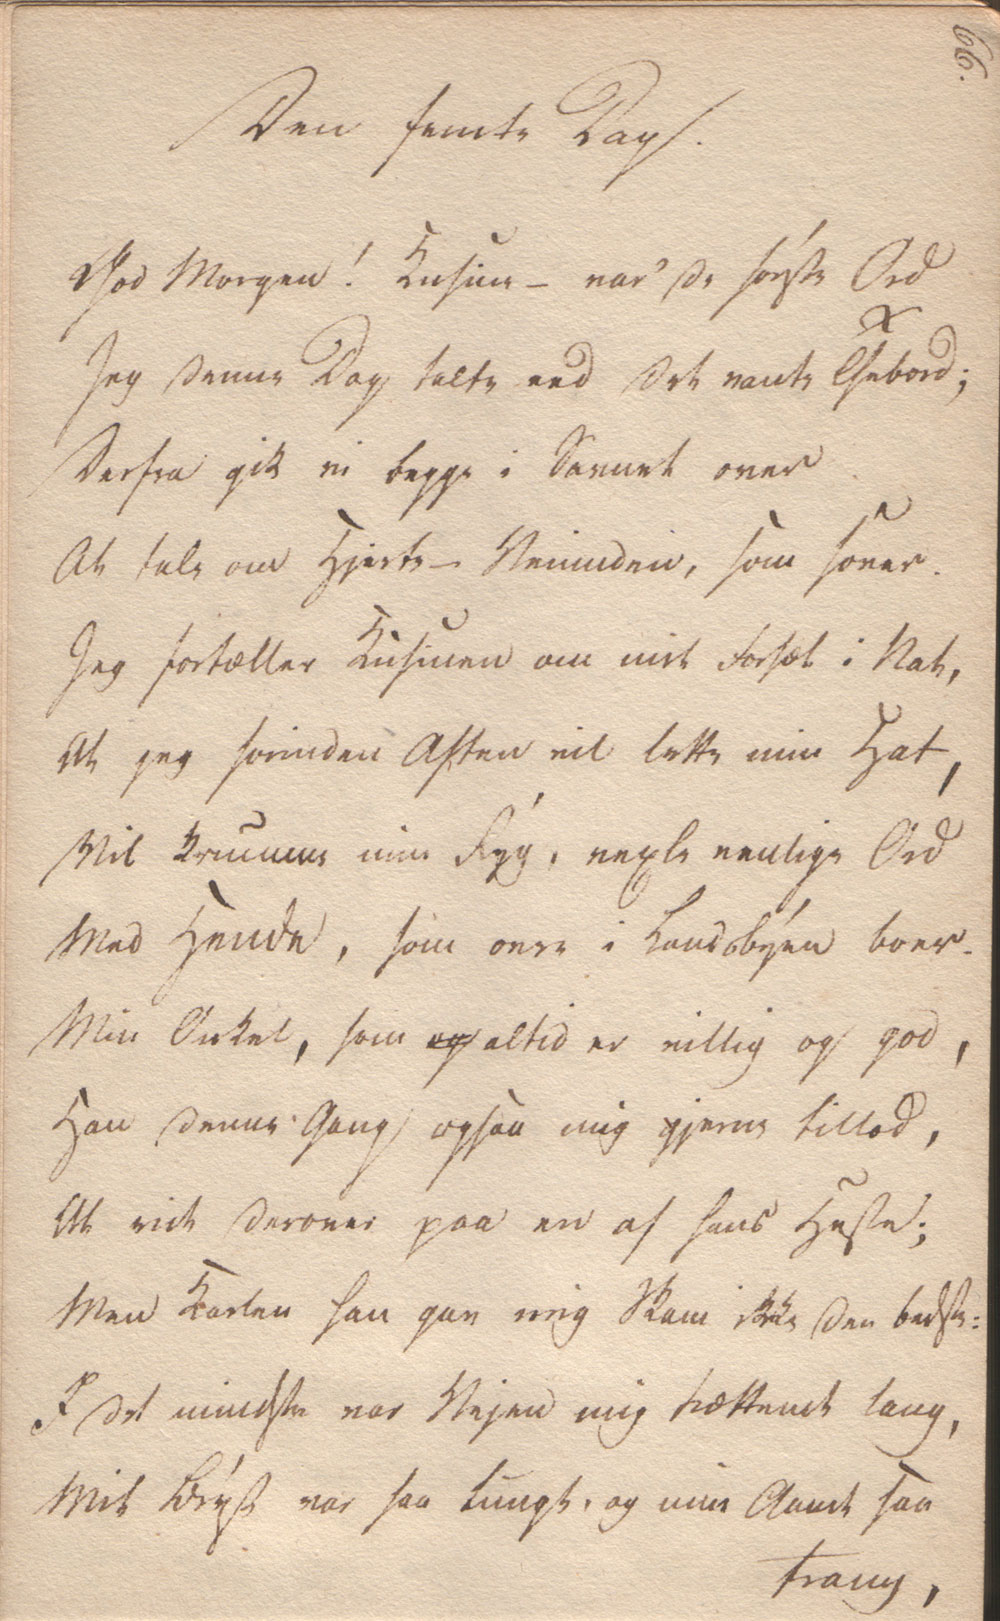 66.
Den femte Dag.
God Morgen! Kusine – var de første Ord
Jeg denne Dag talte ved det vante Thebord;
Derfra gik vi begge i Savnet over
At tale om Hjerte-Veninden, som sover.
Jeg fortæller Kusinen om mit Forsæt i Nat,
At jeg forinden Aften vil lette min Hat,
Vil krumme min Ryg, vexle venlige Ord
Med Hende, som ovre i Landsbyen boer.
Min Onkel, som og altid er villig og god,
Han denne Gang ogsaa mig gjerne tillod,
At ride derover paa en af hans Heste;
Men Karlen han gav mig Skam ikke den bedste:
I det mindste var Vejen mig trættende lang,
Mit Bryst var saa tungt, og min Aande saa
trang,